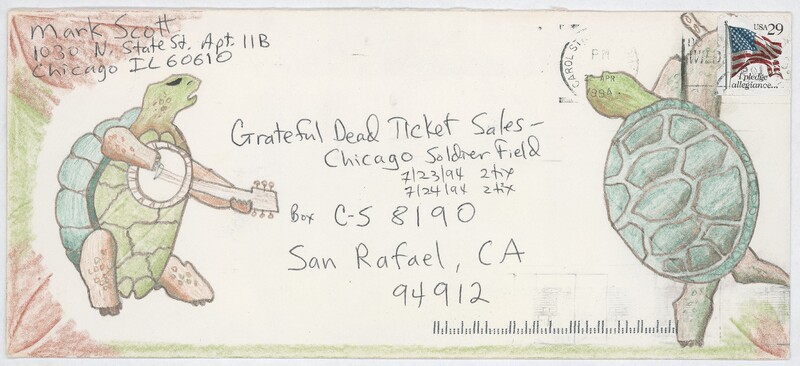 Mark Scott
1030 N. State St. Apt. 11B
Chicago IL 60610
CAROL ST
PM
22 APR
1994
USA 29
I pledge
allegiance...
Grateful Dead Ticket Sales -
Chicago Soldier Field
7/23/94 2 tix
7/24/94 2 tix
Box C-S 8190
San Rafael, CA
94912